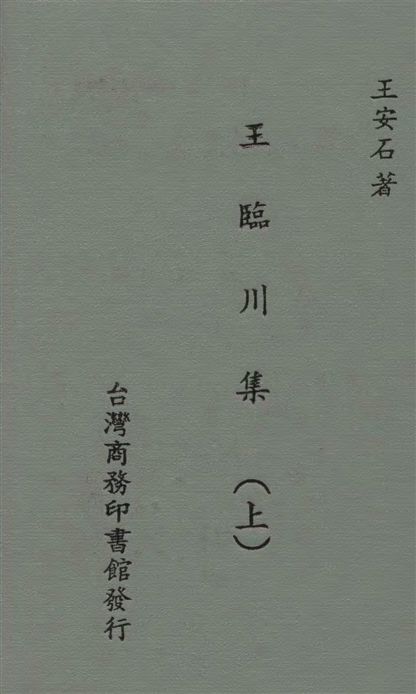 王安石著
王臨川集(上)
台灣商務印書館發行